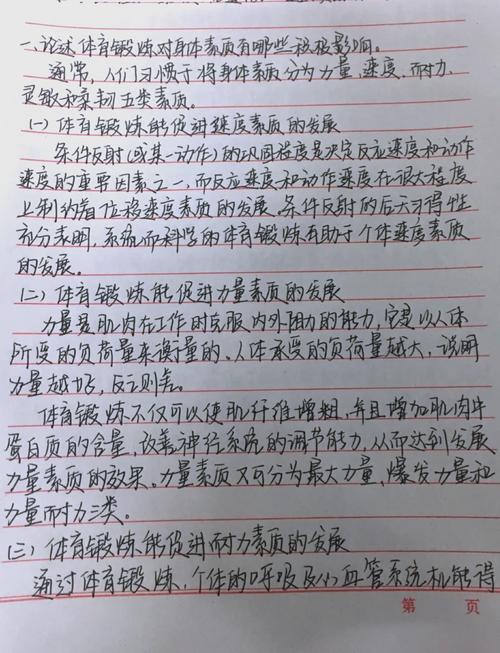 一、论述体育锻炼对身体素质有哪些积极影响。
通常，人们习惯于将身体素质分为力量、速度、耐力、
灵敏和柔韧五类素质。
(一)体育锻炼能促进速度素质的发展
条件反射(或某一动作)的巩固程度是决定反应速度和动作
速度的重要因素之一，而反应速度和动作速度在很大程度
上制约着位移速度素质的发展。条件反射的后天习得性
充分表明，系统而科学的体育锻炼有助于个体速度素质
的发展。
(二)体育锻炼能促进力量素质的发展
力量是肌肉在工作时克服内外阻力的能力，它是以人体
所受的负荷量来衡量的。人体承受的负荷量越大，说明
力量越好，反之则差。
体育锻炼不仅可以使肌纤维增粗，并且增加肌肉中
蛋白质的含量，改善神经系统的调节能力，从而达到发展
力量素质的效果。力量素质又可分为最大力量，爆发力量和
力量耐力三类。
(三)体育锻炼能促进耐力素质的发展
通过体育锻炼，个体的呼吸及心血管系统机能得
第 页